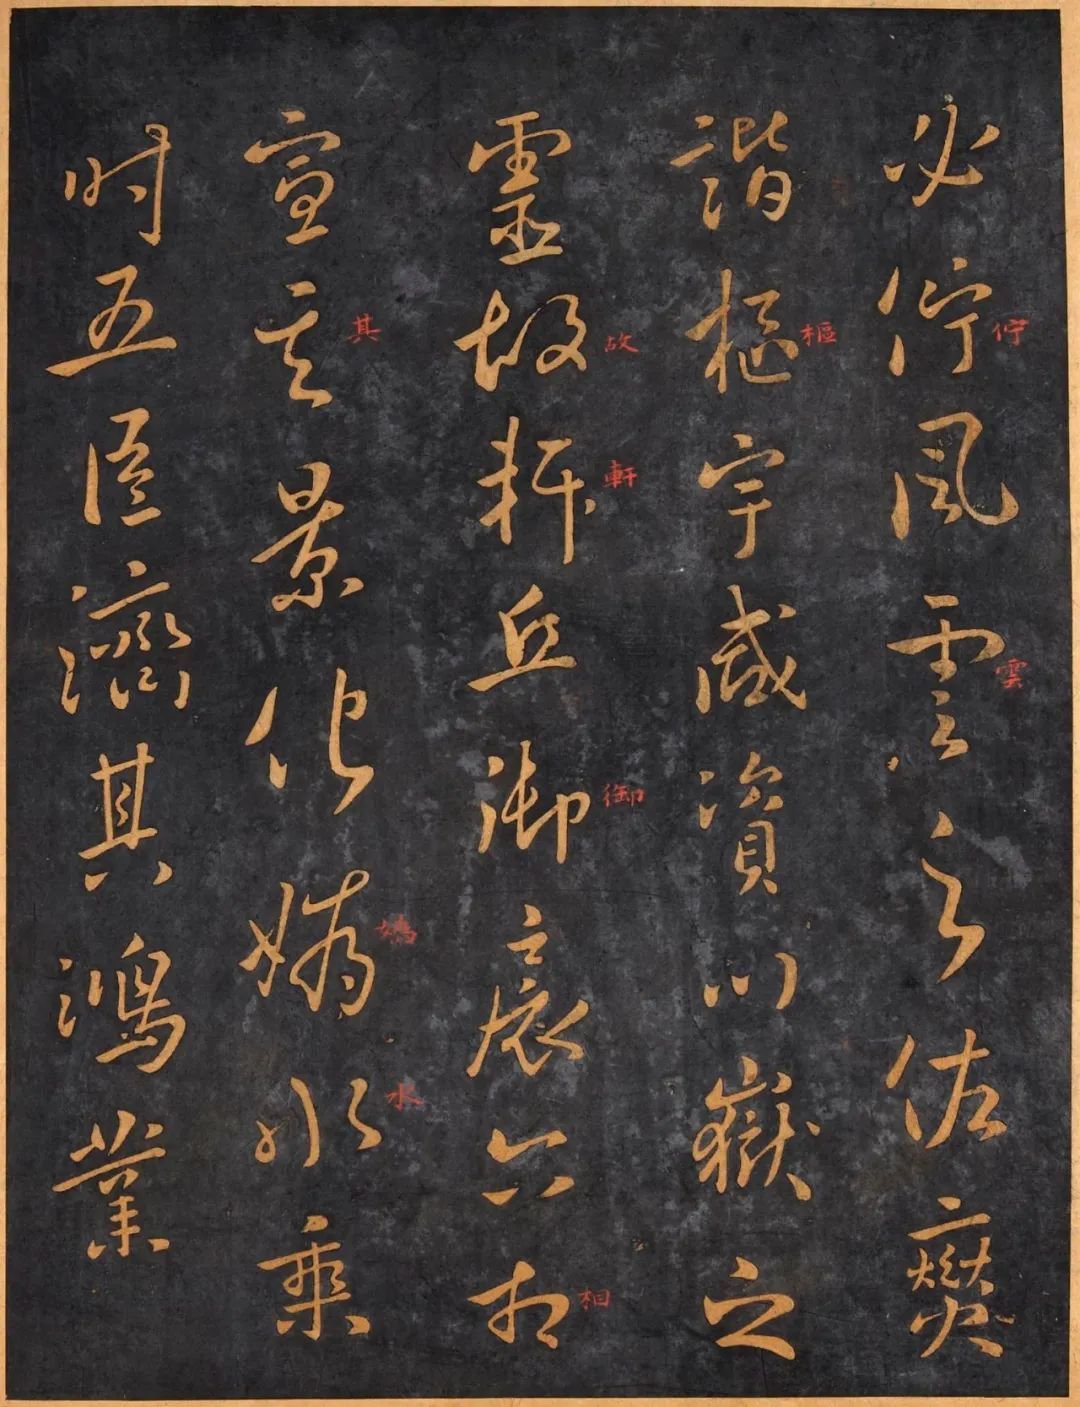 必佇風雲之佐燮
佇
雲
諧樞宇咸資川嶽之
樞
靈故軒丘御扆六相
故
軒
御
相
宣其景化媯水乘
其
媯
水
時五臣濟其鴻業